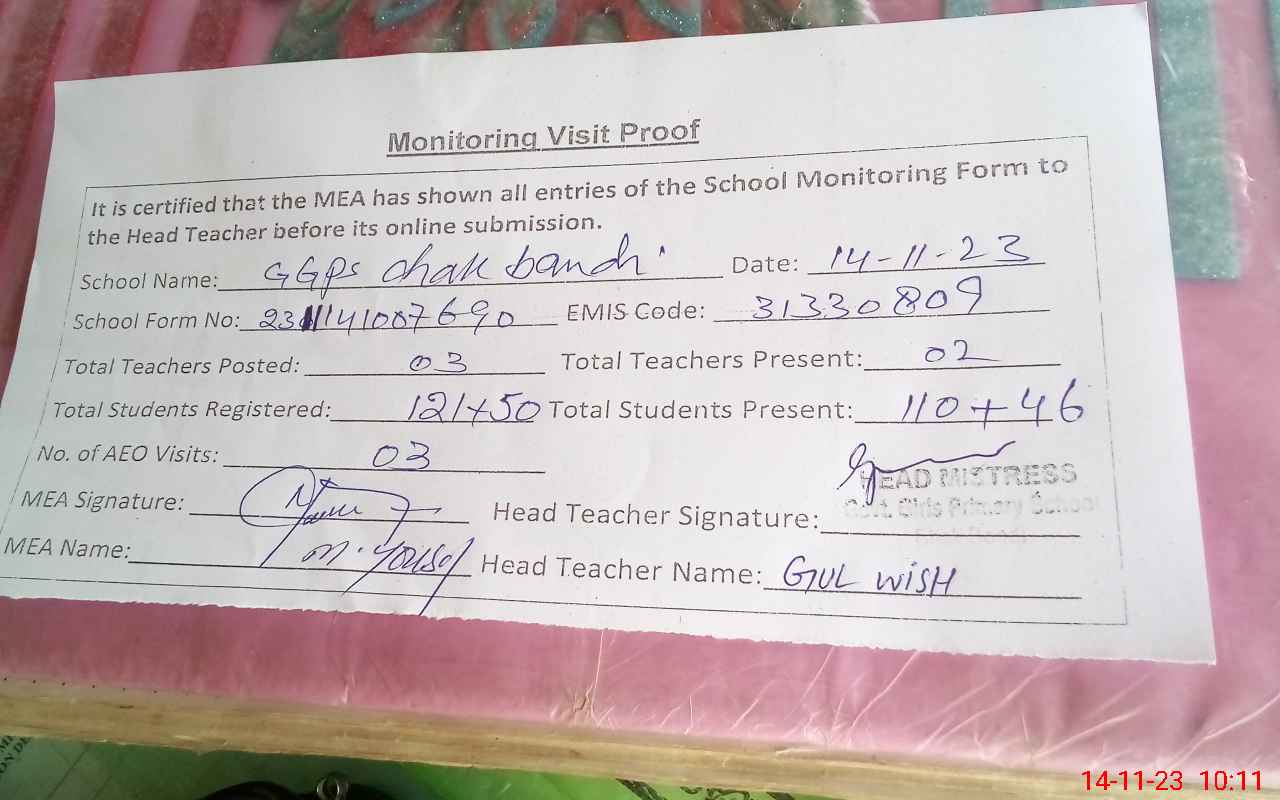 Monitoring Visit Proof
It is certified that the MEA has shown all entries of the School Monitoring Form to
the Head Teacher before its online submission.
School Name: GGPS chak bandi Date: 14-11-23
School Form No: 2311141007690 EMIS Code: 31330809
Total Teachers Posted: 03 Total Teachers Present: 02
Total Students Registered: 121+50 Total Students Present: 110+46
No. of AEO Visits: 03
HEAD MISTRESS
Govt. Girls Primary School
MEA Signature: Head Teacher Signature:
MEA Name: M. YOUSAF Head Teacher Name: GUL WISH
14-11-23 10:11